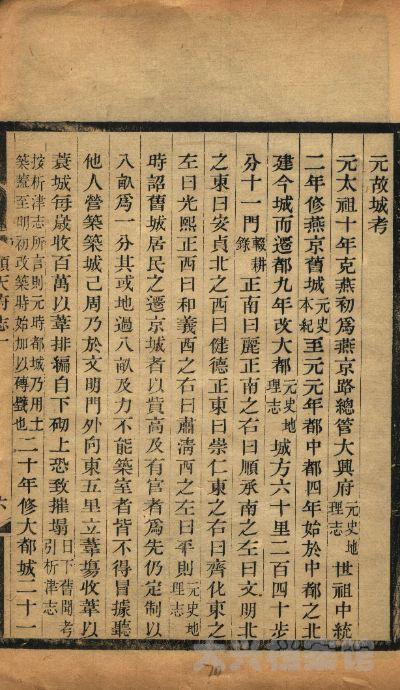 元故城考
元太祖十年克燕初爲燕京路總管大興府元史地理志世祖中統
二年修燕京舊城元史本紀至元元年都中都四年始於中都之北
建今城而遷都九年改大都元史地理志城方六十里二百四十步
分十一門輟耕錄正南曰麗正南之右曰順承南之左曰文明北
之東曰安貞北之西曰健德正東曰崇仁東之右曰齊化東之
左曰光熙正西曰和義西之右曰肅清西之左曰平則元史地理志
時詔舊城居民之遷京城者以貲高及有官者爲先仍定制以
八畝爲一分其或地過八畝及力不能築室者皆不得冒據聽
他人營築築城已周乃於文明門外向東五里立葦場收葦以
蓑城每歲收百萬以葦排編自下砌上恐致摧塌日下舊聞考引析津志
按析津志所言則元時都城乃用土築蓋至明初改築時始加以磚甓也二十年修大都城二十一
順天府志一
六